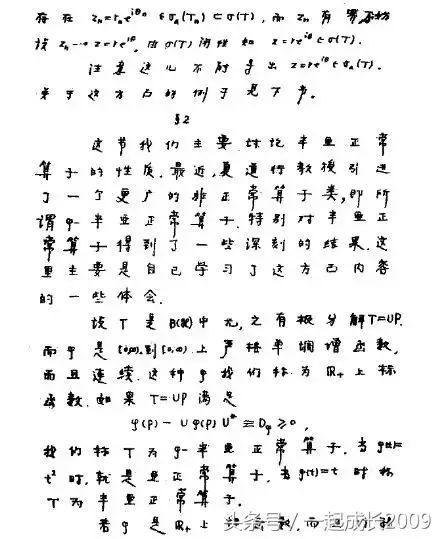 存在 zₙ=rₙe^{iθₙ}∈σₐ(Tₙ)⊂σ(T), 而 zₙ 有界, 不妨
设 zₙ→z=re^{iθ}, 由σ(T)闭性知 z=re^{iθ}∈σ(T).
注意这儿不能导出 z=re^{iθ}∈σₐ(T).
关于这方面的例子见下节.
§2
这节我们主要讨论半亚正常
算子的性质. 最近, 夏道行教授引进
了一个更广的非正常算子类, 即所
谓φ-半亚正常算子. 特别对半亚正
常算子得到了一些深刻的结果. 这
里主要是自己学习了这方面内容
的一些体会.
设T是B(ℋ)中元, 它有极分解T=UP.
而φ是[0,∞)到[0,∞)上严格单调增函数,
而且连续. 这种φ我们称为ℝ₊上标
函数. 如果T=UP满足
φ(P)-Uφ(P)U*≡D_φ≥0,
我们称T为φ-半亚正常算子. 当φ(t)=
t²时, 就是亚正常算子, 当φ(t)=t时称
T为半亚正常算子.
若φ是ℝ₊上标函数, 而且
头条号/一起成长2009